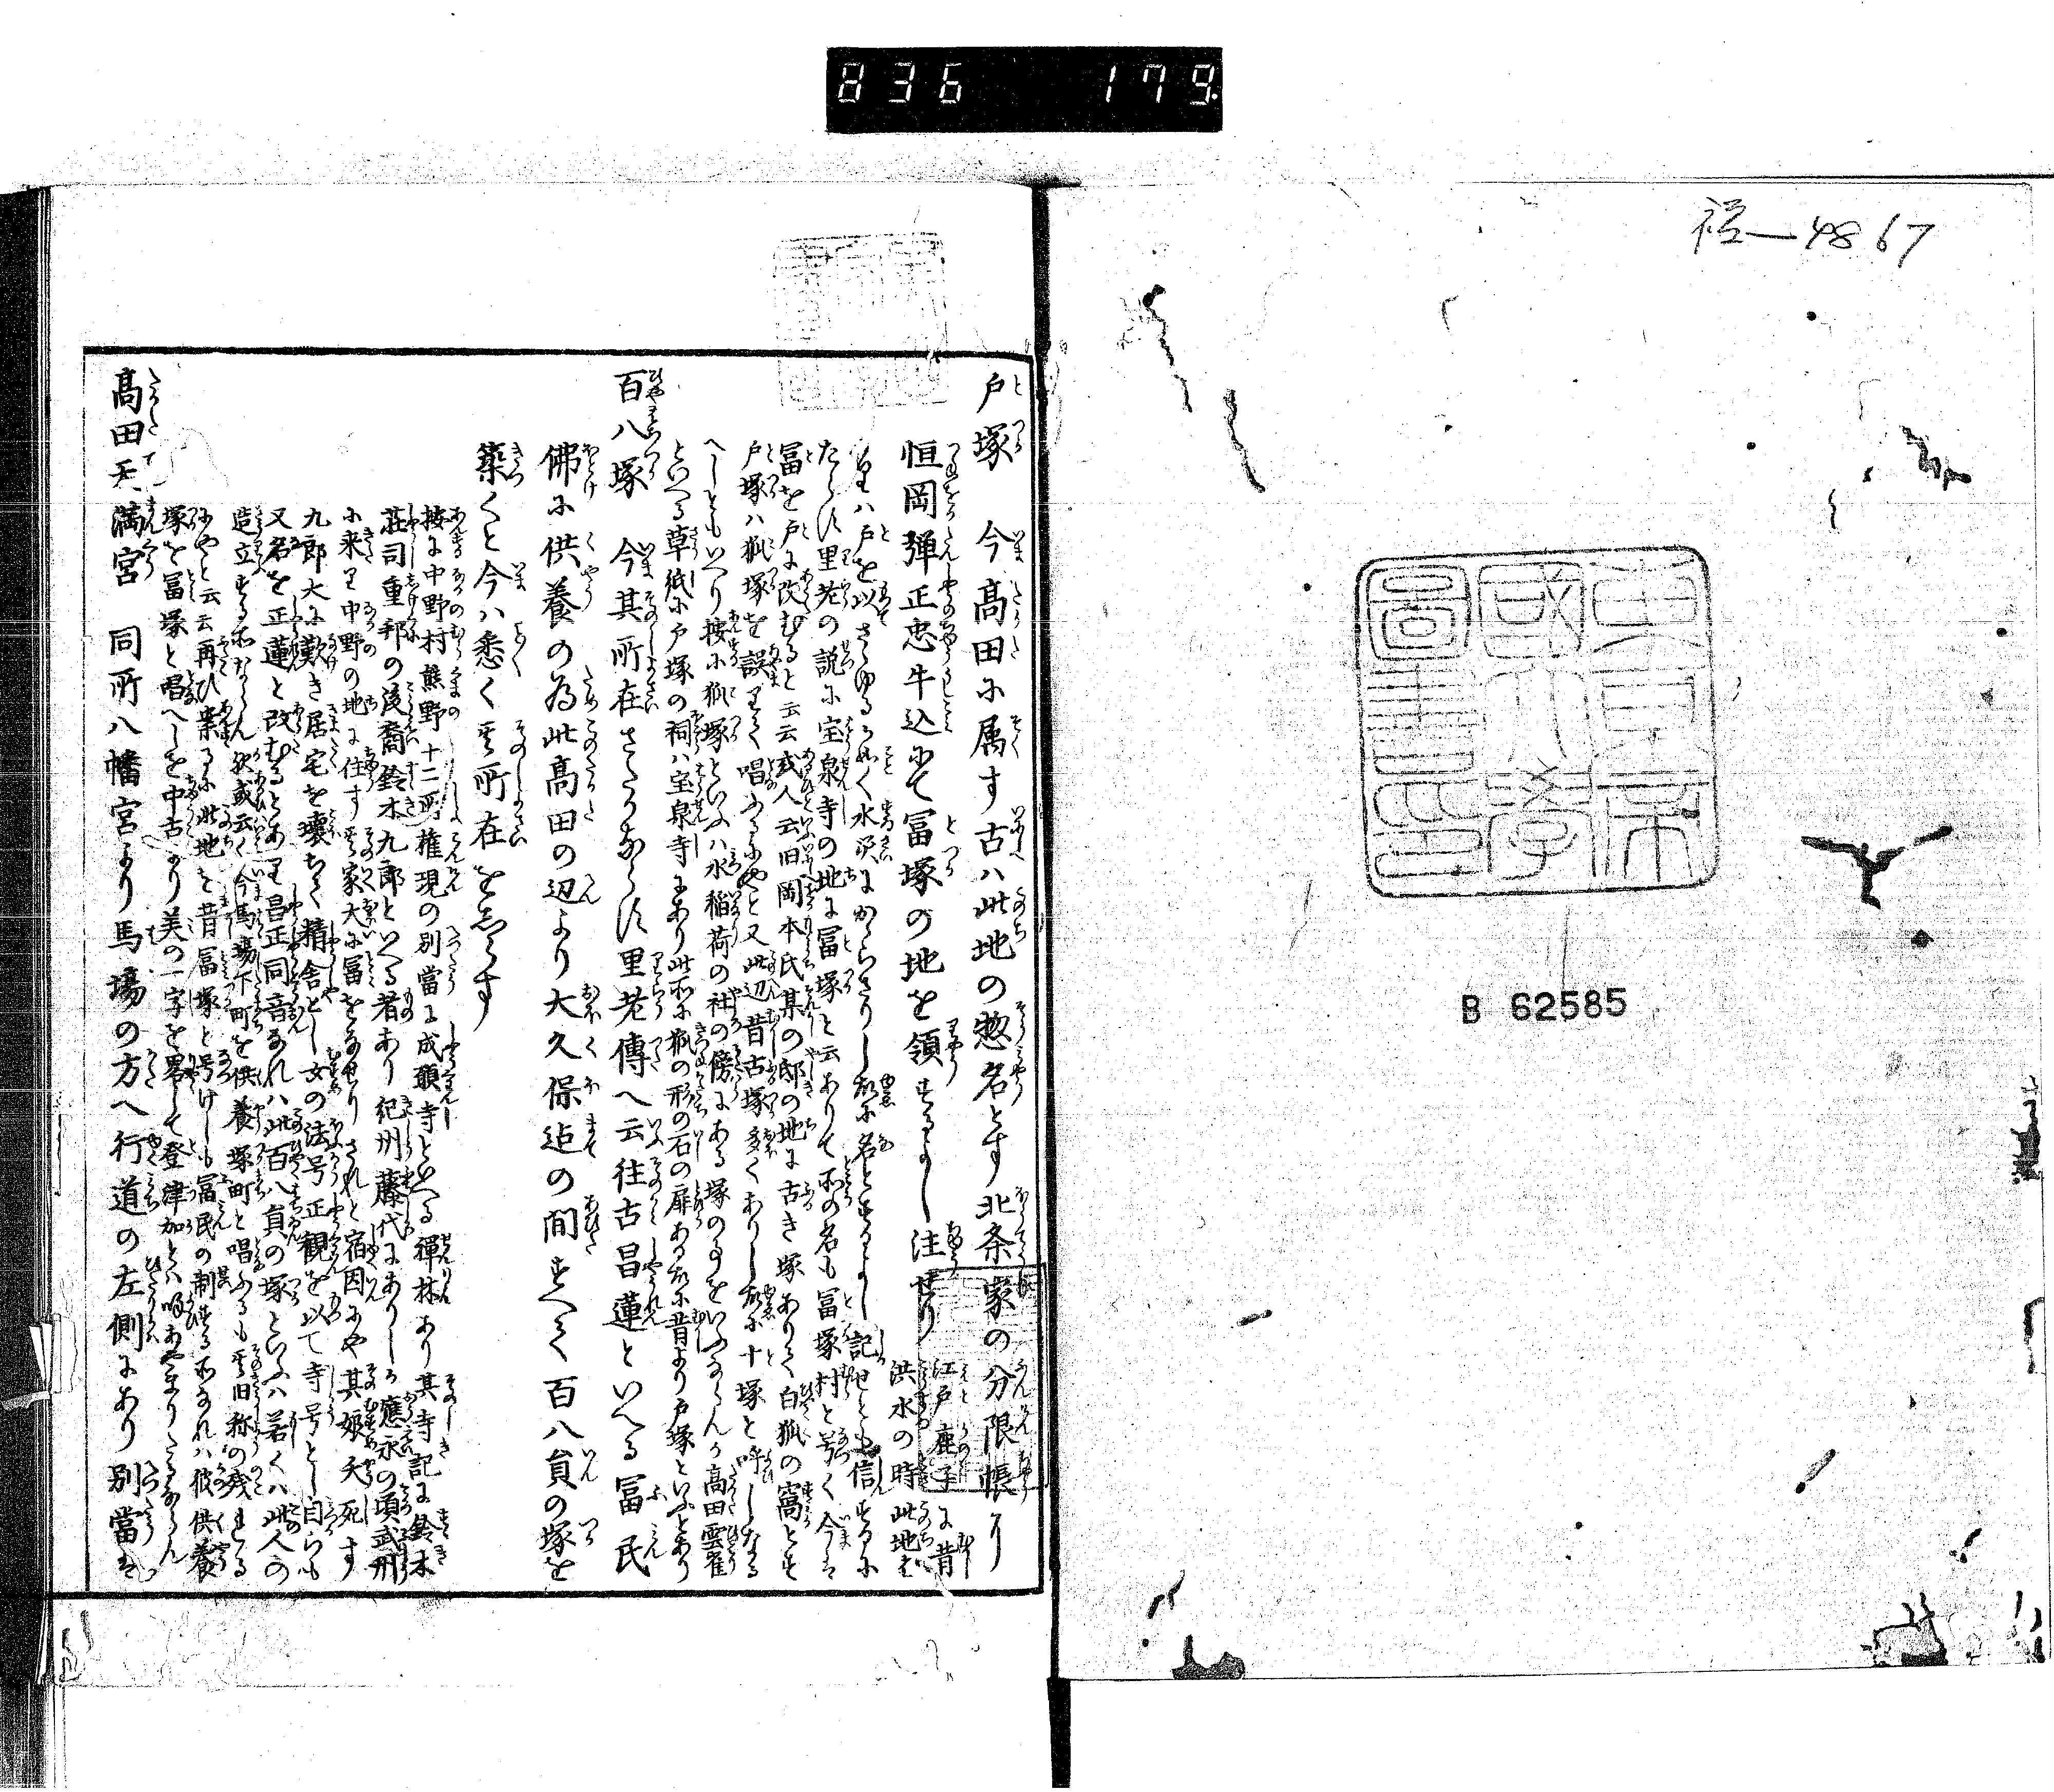 836 179
禄一4867
B 62585
戸塚 今高田に属す古ハ此地の惣名とす北条家の分限帳に
恒岡弾正忠牛込にて冨塚の地を領するよし注せり 江戸鹿子に昔
洪水の時此地は
ハ戸を以さゝゆる如く水災にかゝらさりし故に名とするよし記せとも信するに
たらす里老の説に宝泉寺の地に冨塚と云ありて所の名も冨塚村と号く今は
冨を戸に改むると云云或人云旧岡本氏某の邸の地に古き塚ありて白狐の窩とす
戸塚ハ狐塚を誤りて唱ふるにやと又此辺昔古塚多くありし故に十塚と呼しなる
へしともいへり按に狐塚といふハ水稲荷の社の傍にある塚の事をいふならんか高田雲雀
といへる草紙に戸塚の祠ハ宝泉寺にあり此所に狐の形の石の扉ある故に昔より戸塚といふとあり
百八塚 今其所在さたかならす里老傳へ云往古昌蓮といへる冨民
佛に供養の為此高田の辺より大久保迠の間すへて百八員の塚を
築くと今ハ悉く其所在を志らす
按に中野村熊野十二所権現の別當に成願寺といへる禅林あり其寺記に鈴木
荘司重邦の後裔鈴木九郎といへる者あり紀州藤代にありしか應永の頃武州
に来り中野の地に住す其家大に冨をなせりされと宿因にや其娘夭死す
九郎大に歎き居宅を壊ちて精舎とし女の法号正観を以て寺号とし自らも
又名を正蓮と改むるとあり昌正同音なれハ此百八員の塚といふハ若くハ此人の
造立する所ならん歟或云く今馬場下町を供養塚町と唱ふるも其旧称の残れる
にやと云云再ひ案るに此地を昔冨塚と号けしも冨民の制する所なれハ彼供養
塚を冨塚と唱へしを中古より美の一字を畧して登津加とハ唱あやまりたるならん
高田天満宮 同所八幡宮より馬場の方へ行道の左側にあり別當は